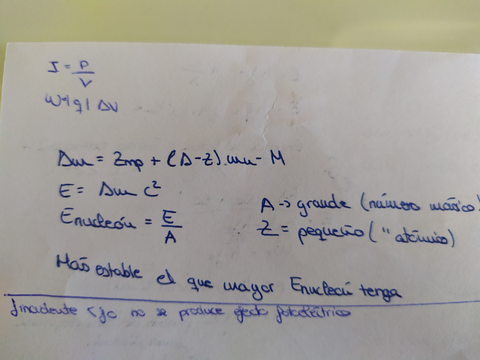 I = P/V
W=|q| ΔV
Δm = Zmp + (A-Z).mn - M
E = Δm c²
Enucleón = E/A
A → grande (número másico)
Z = pequeño (" atómico)
Más estable el que mayor Enucleón tenga
f incidente < fo no se produce efecto fotoeléctrico